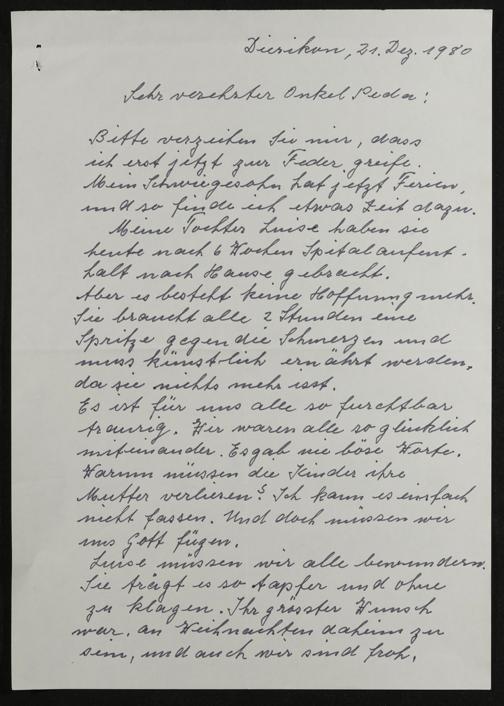 Dierikon, 21. Dez. 1980
Sehr verehrter Onkel Peda!
Bitte verzeihen Sie mir, dass
ich erst jetzt zur Feder greife.
Mein Schwiegesohn hat jetzt Ferien,
und so finde ich etwas Zeit dazu.
Meine Tochter Luise haben sie
heute nach 6 Wochen Spitalaufent-
halt nach Hause gebracht.
Aber es besteht keine Hoffnung mehr.
Sie braucht alle 2 Stunden eine
Spritze gegen die Schmerzen und
muss künstlich ernährt werden,
da sie nichts mehr isst.
Es ist für uns alle so furchtbar
traurig. Wir waren alle so glücklich
miteinander. Es gab nie böse Worte.
Warum müssen die Kinder ihre
Mutter verlieren? Ich kann es einfach
nicht fassen. Und doch müssen wir
uns Gott fügen.
Luise müssen wir alle bewundern.
Sie trägt es so tapfer und ohne
zu klagen. Ihr grösster Wunsch
war, an Weihnachten daheim zu
sein, und auch wir sind froh,